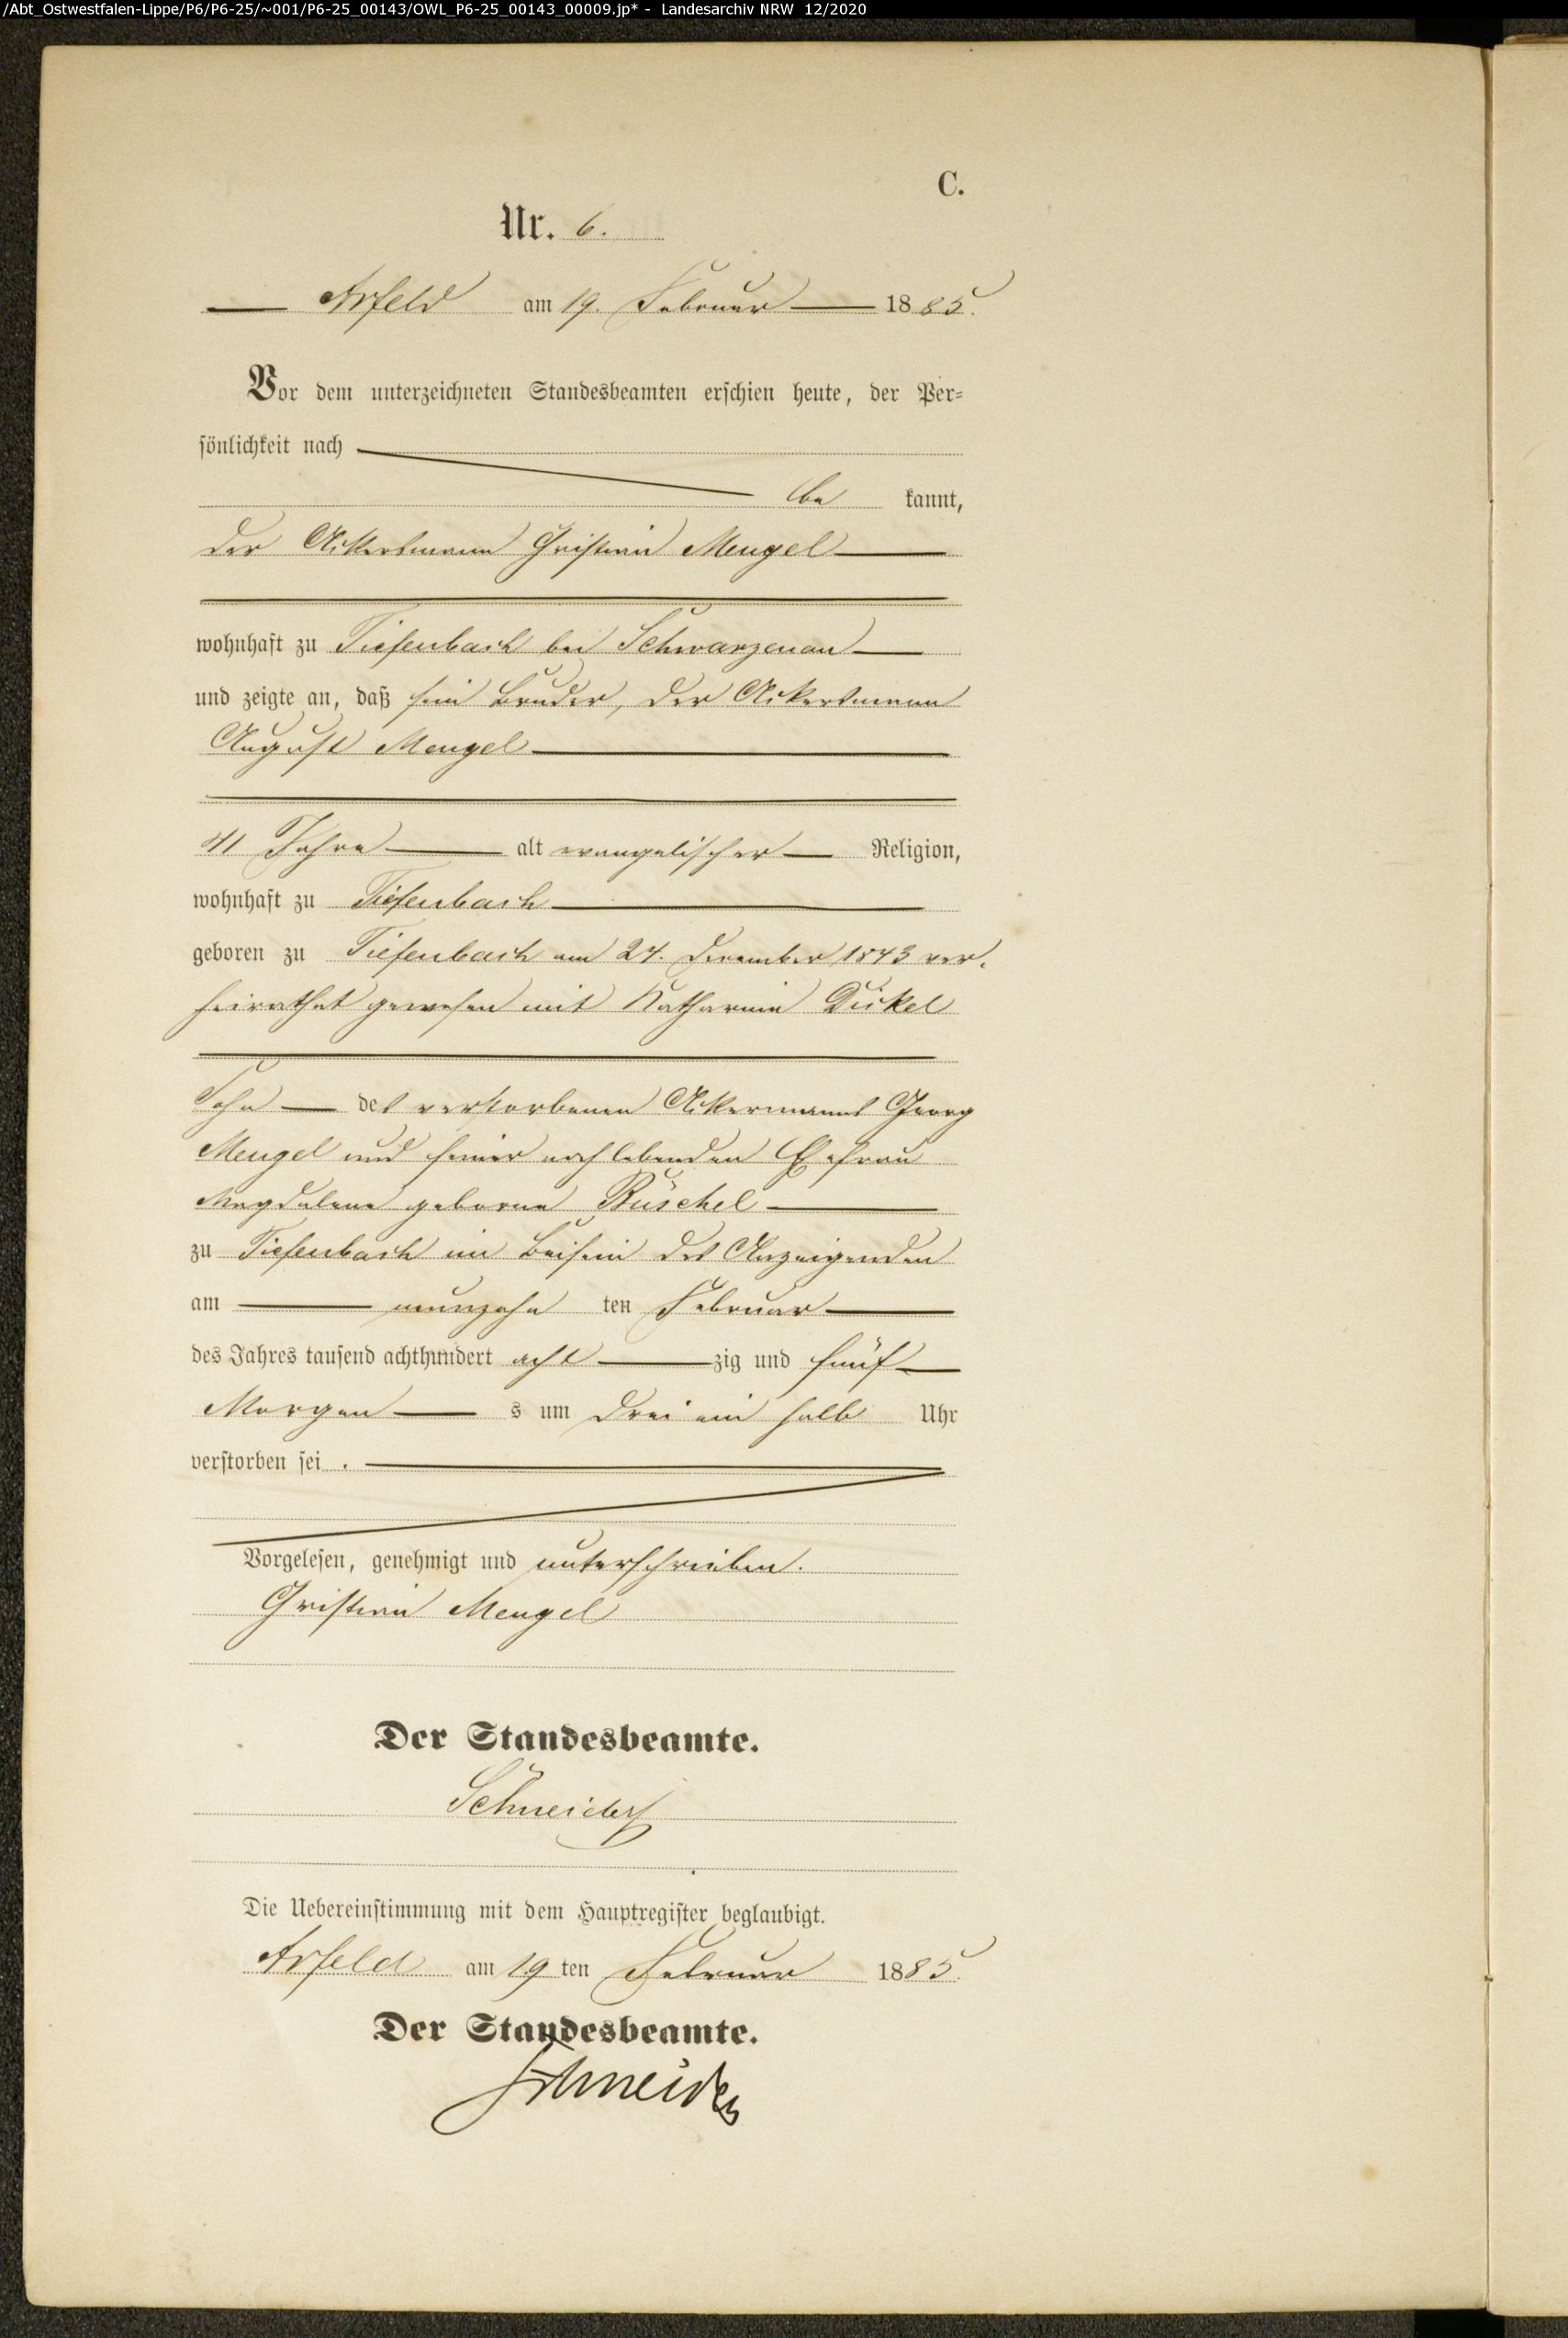 /Abt_Ostwestfalen-Lippe/P6/P6-25/~001/P6-25_00143/OWL_P6-25_00143_00009.jp* - Landesarchiv NRW 12/2020
C.
Nr. 6.
Arfeld am 19. Februar 1885.
Vor dem unterzeichneten Standesbeamten erschien heute, der Per-
sönlichkeit nach
be kannt,
der Ackersmann Christian Mengel
wohnhaft zu Tiefenbach bei Schwarzenau
und zeigte an, daß sein Bruder, der Ackersmann
August Mengel
41 Jahre alt evangelischer Religion,
wohnhaft zu Tiefenbach
geboren zu Tiefenbach am 24. December 1843 ver-
heirathet gewesen mit Katharine Dickel
Sohn des verstorbenen Ackermanns Georg
Mengel und seiner noch lebenden Ehefrau
Magdalene geborne Büschel
zu Tiefenbach im Beisein des Anzeigenden
am neunzehn ten Februar
des Jahres tausend achthundert acht zig und fünf
Morgen s um drei ein halb Uhr
verstorben sei.
Vorgelesen, genehmigt und unterschrieben.
Christian Mengel
Der Standesbeamte.
Schneider
Die Uebereinstimmung mit dem Hauptregister beglaubigt.
Arfeld am 19 ten Februar 1885.
Der Standesbeamte.
Schneider